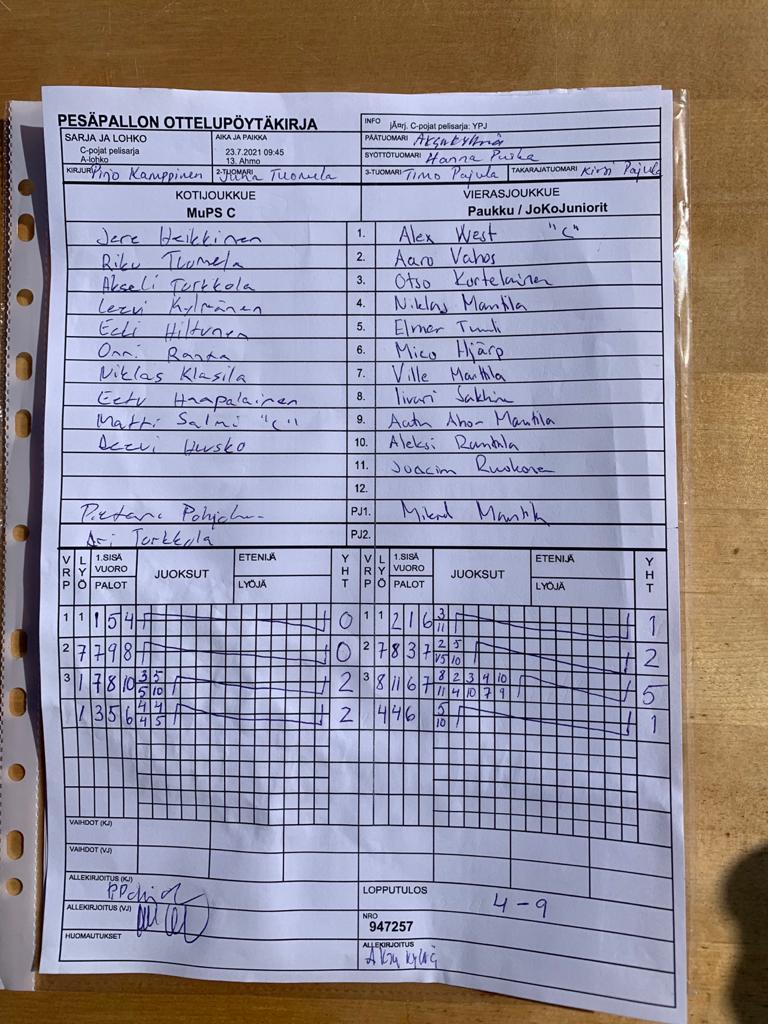 PESÄPALLON OTTELUPÖYTÄKIRJA
INFO jÃ¤rj. C-pojat pelisarja: YPJ
SARJA JA LOHKO
C-pojat pelisarja
A-lohko
AIKA JA PAIKKA
23.7.2021 09:45
13. Ahmo
PÄÄTUOMARI
SYÖTTÖTUOMARI Hanna Puska
KIRJURI Pirjo Kamppinen 2-TUOMARI Juha Tuomela 3-TUOMARI Timo Pajula TAKARAJATUOMARI Kirsi Pajula
KOTIJOUKKUE VIERASJOUKKUE
MuPS C Paukku / JoKoJuniorit
Jere Heikkinen 1. Alex West "C"
Riku Tuomela 2. Aaro Vahos
Akseli Torkkola 3. Otso Kortelainen
Leevi Kylmänen 4. Niklas Mantila
Eeli Hiltunen 5. Elmer
Onni Ranta 6. Mico Hjärp
Niklas Klasila 7. Ville Mantila
Eetu Haapalainen 8. Iivari
Matti Salmi "C" 9. Aatu Aho-Mantila
Leevi Husko 10. Aleksi Rantila
11. Joacim Ruokonen
12.
Pietari PJ1. Mikael Mantila
Ari Torkkola PJ2.
VRP LYÖ 1.SISÄ VUORO PALOT JUOKSUT ETENIJÄ LYÖJÄ YHT VRP LYÖ 1.SISÄ VUORO PALOT JUOKSUT ETENIJÄ LYÖJÄ YHT
1 1 1 5 4 0 1 1 2 1 6 3 1
11
2 7 7 9 8 0 2 7 8 3 7 2 5 2
10
3 1 7 8 10 3 5 2 3 8 11 6 7 8 2 3 9 10 5
5 10 11 4 10 7 9
1 3 5 6 4 4 2 4 4 6 5 1
4 5 10
VAIHDOT (KJ)
VAIHDOT (VJ)
ALLEKIRJOITUS (KJ)
ALLEKIRJOITUS (VJ)
HUOMAUTUKSET
LOPPUTULOS 4 - 9
NRO
947257
ALLEKIRJOITUS